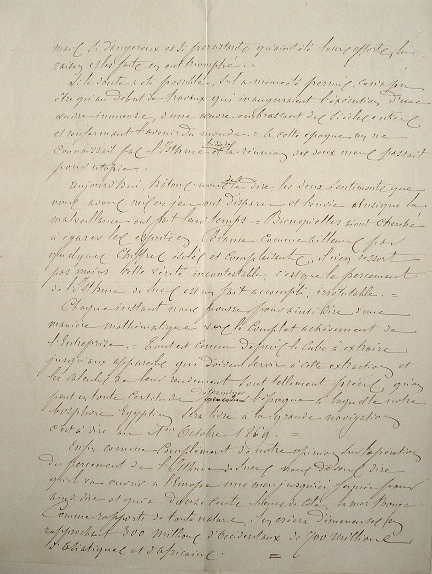 mais si dangereux et si persistants qu'aient été leurs efforts, la
raison et les faits en ont triomphé. -
Si le doute a été possible, s'il a même été permis, ce n'a pu
être qu'au début de travaux qui inauguraient l'exécution d'une
œuvre immense, d'une œuvre embrassant des siècles entiers
et renfermant l'avenir du monde = à cette époque on ne
connaissait pas l'Isthme et la réunion des deux mers passait
pour utopie. -
Aujourd'hui, hâtons nous de le dire les deux sentiments que
nous avons mis en jeu ont disparu et l'envie ainsi que la
malveillance ont fait leur temps. - Bien qu'elles aient cherché
à égarer les esprits en comme ailleurs par
quelques chiffres isolés et complaisants, il n'en ressort
pas moins cette vérité incontestable, c'est que le percement
de l'Isthme de Suez est un fait accompli, irréfutable. =
Chaque instant nous prouve pour ainsi dire d'une
manière mathématique le complet achèvement de
l'Entreprise. - Tout est connu depuis le cube à extraire
jusqu'aux appareils qui doivent servir à cette extraction et
les calculs de leur rendement sont tellement précis, qu'on
peut en toute certitude déterminer l'époque à laquelle notre
bosphore Egyptien sera livré à la grande navigation
c'est à dire au 1er Octobre 1869. =
Enfin comme complément de notre opinion sur l'opération
du percement de l'Isthme de Suez nous devons dire
qu'il va ouvrir à l'Europe une mer jusqu'ici fermée pour
ainsi dire et qui a douze cents lieues de côtes, la mer Rouge
Comme rapports de toute nature, il en créera d'immenses en
rapprochant 300 millions d'Occidentaux de 700 millions
d'Asiatiques et d'Africains. =